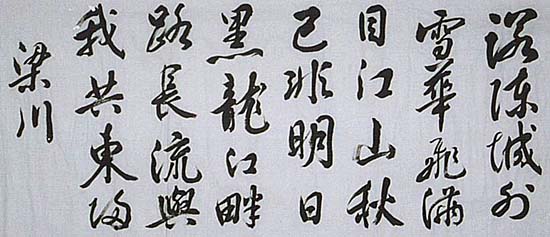 諾陳城外
雪華飛滿
目江山秋
已非明日
黑龍江畔
路長流與
我共東歸
梁川